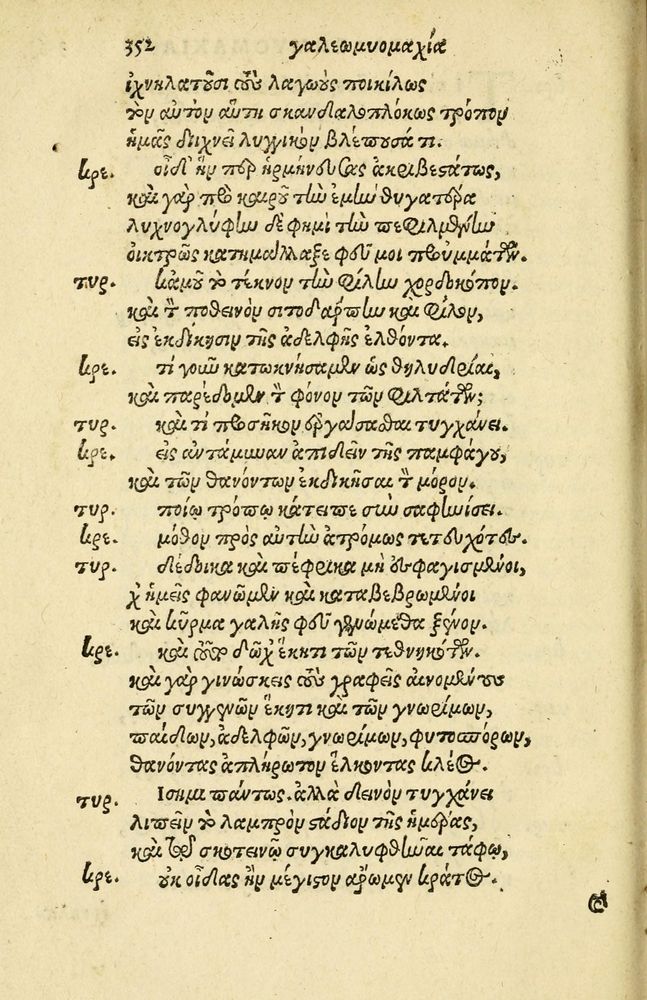 352 γαλεωμυομαχία
ἰχνηλατοῦσι τοὺς λαγωοὺς ποικίλως
τὸν αὐτὸν αὕτη σκανδαλοπλόκως τρόπον
ἡμᾶς ἀνιχνεῖ λυγγικὸν βλέπουσά τι.
κρε. οἶδ' ἥν περ ἡρμήνευσας ἀκριβεστάτως,
καὶ γὰρ πρὸ καιροῦ τὴν ἐμὴν θυγατέρα
λυχνογλύφην δέ φημι τὴν πεφιλμένην
οἰκτρῶς κατημάλλαξε φεῦ μοι προὐμμάτων.
τυρ. κἀμοῦ τὸ τέκνον τὴν φίλην χορδοκόπον.
καὶ τὸν ποθεινὸν σιτοδάρπτην καὶ φίλον,
εἰς ἐκδίκησιν τῆς ἀδελφῆς ἐλθόντα.
κρε. τί γοῦν κατωκνήσαμεν ὡς θηλυδρίαι,
καὶ παρέδομεν τὸν φόνον τῶν φιλτάτων;
τυρ. καὶ τί προσῆκον ἐργάσασθαι τυγχάνει.
κρε. εἰς ἀντάμυναν ἀπιδεῖν τῆς παμφάγου,
καὶ τῶν θανόντων ἐκδικῆσαι τὸν μόρον.
τυρ. ποίῳ τρόπῳ κάτειπε σὺν σαφηνίσει.
κρε. μόθον πρὸς αὐτὴν ἀτρόμως τετευχότες.
τυρ. δέδοικα καὶ πέφρικα μὴ ἐσφαγισμένοι,
χ' ἡμεῖς φανῶμεν καὶ καταβεβρωμένοι
καὶ κῦρμα γαλῆς φεῦ γενώμεθα ξένον.
κρε. καὶ δῶχ' ἕκητι τῶν τεθνηκότων.
καὶ γὰρ γινώσκεις τοὺς γραφεῖς
τῶν συγγενῶν ἕκητι καὶ τῶν γνωρίμων,
παίδων, ἀδελφῶν, γνωρίμων, φυτοσπόρων,
θανόντας ἀπλήρωτον ἕλκοντας κλέος.
τυρ. Ἴσημι πάντως. ἀλλὰ δεινὸν τυγχάνει
λιπεῖν τὸ λαμπρὸν στάδιον τῆς ἡμέρας,
καὶ τῷ σκοτεινῷ συγκαλυφθῆναι τάφῳ,
κρε. οὐκ οἶδας ἣν μέγιστον ἄρωμεν κράτος.